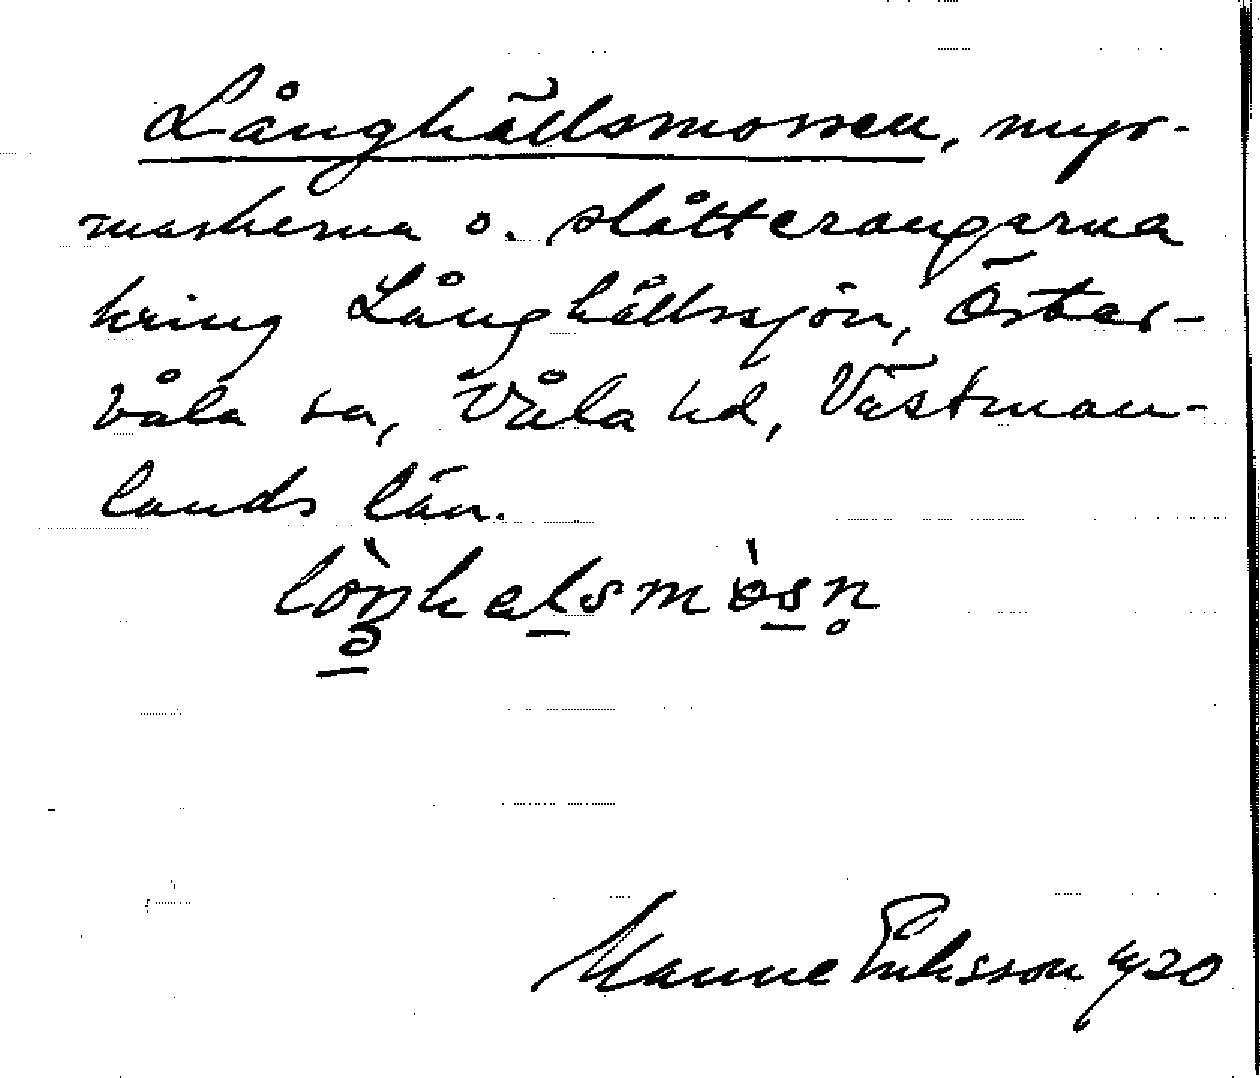 Långhällsmossen, myr-
markerna o. slåtterängarna
kring Långhällssjön, Öster-
våla sn, Våla hd, Västman-
lands län.
Manne Eriksson 1920